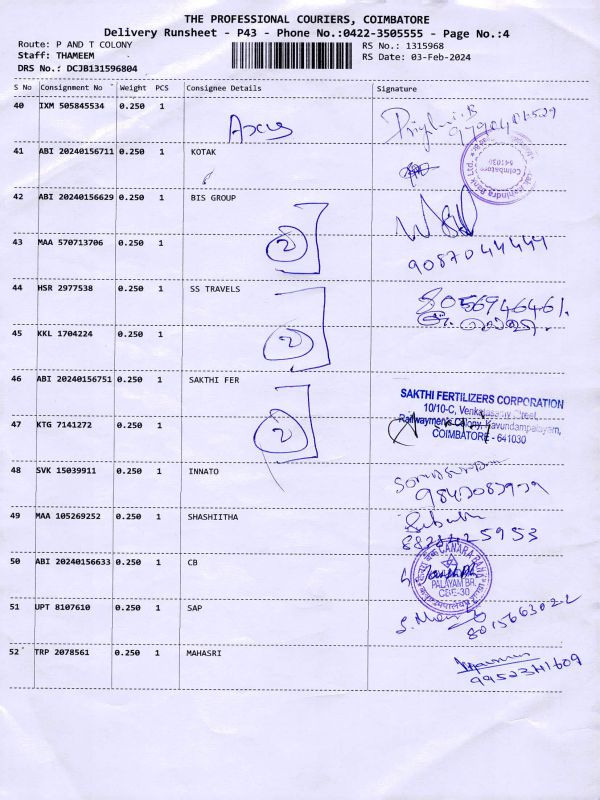 THE PROFESSIONAL COURIERS, COIMBATORE
Delivery Runsheet - P43 - Phone No.:0422-3505555 - Page No.:4
Route: P AND T COLONY
RS No.: 1315968
Staff: THAMEEM
RS Date: 03-Feb-2024
DRS No.: DCJB131596804
S No Consignment No Weight PCS Consignee Details Signature
40 IXM 505845534 0.250 1
Axis
41 ABI 20240156711 0.250 1 KOTAK
Coimbatore
641030
42 ABI 20240156629 0.250 1 BIS GROUP
2
43 MAA 570713706 0.250 1
9087044444
44 HSR 2977538 0.250 1 SS TRAVELS
8056946461.
45 KKL 1704224 0.250 1
2
46 ABI 20240156751 0.250 1 SAKTHI FER
SAKTHI FERTILIZERS CORPORATION
10/10-C, Venkatasamy Street,
47 KTG 7141272 0.250 1
2
Kavundampalayam,
COIMBATORE - 641030
48 SVK 15039911 0.250 1 INNATO
49 MAA 105269252 0.250 1 SHASHIITHA
50 ABI 20240156633 0.250 1 CB
CANARA BANK
PALAYAM BR.
CBE-30
51 UPT 8107610 0.250 1 SAP
8015663022
52 TRP 2078561 0.250 1 MAHASRI